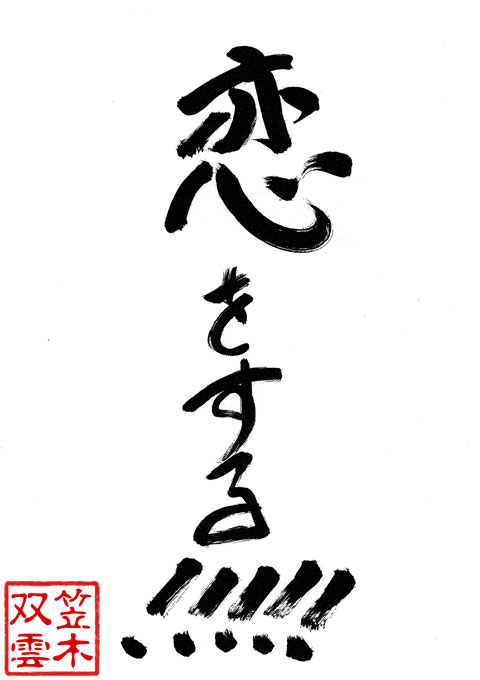 恋をする!!!!!
笠木
双雲